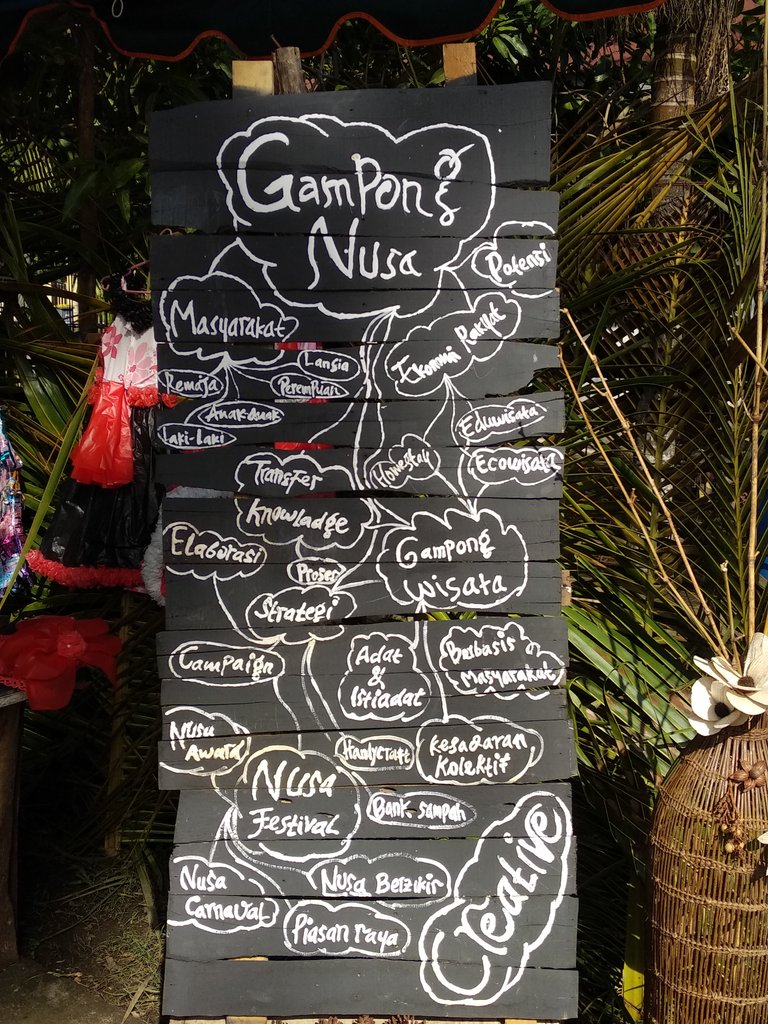 Gampong
Nusa
Potensi
Masyarakat
Ekonomi Rakyat
Lansia
Remaja
Perempuan
Anak-anak
Laki-Laki
Eduwisata
Homestay
Ecowisata
Transfer
Knowladge
Elaborasi
Gampong
wisata
Proses
Strategi
Campaign
Adat
&
Istiadat
Berbasis
Masyarakat
Nusa
Award
Handycraft
Kesadaran,
Kolektif
Nusa
Festival
Bank sampah
Creative
Nusa
Carnaval
Nusa Berzikir
Piasan raya